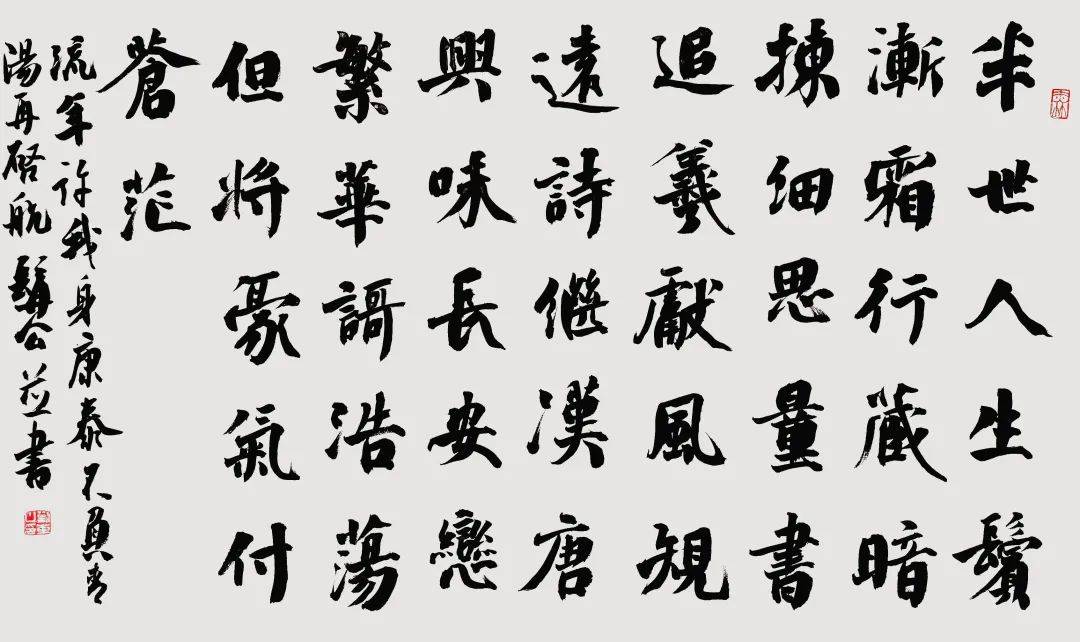 半世人生鬢
漸霜行藏暗
揀細思量書
追羲獻風規
遠詩繼漢唐
興味長安戀
繁華謌浩蕩
但將豪氣付
蒼茫
流年許我身康泰不負青
陽再啓航公並書